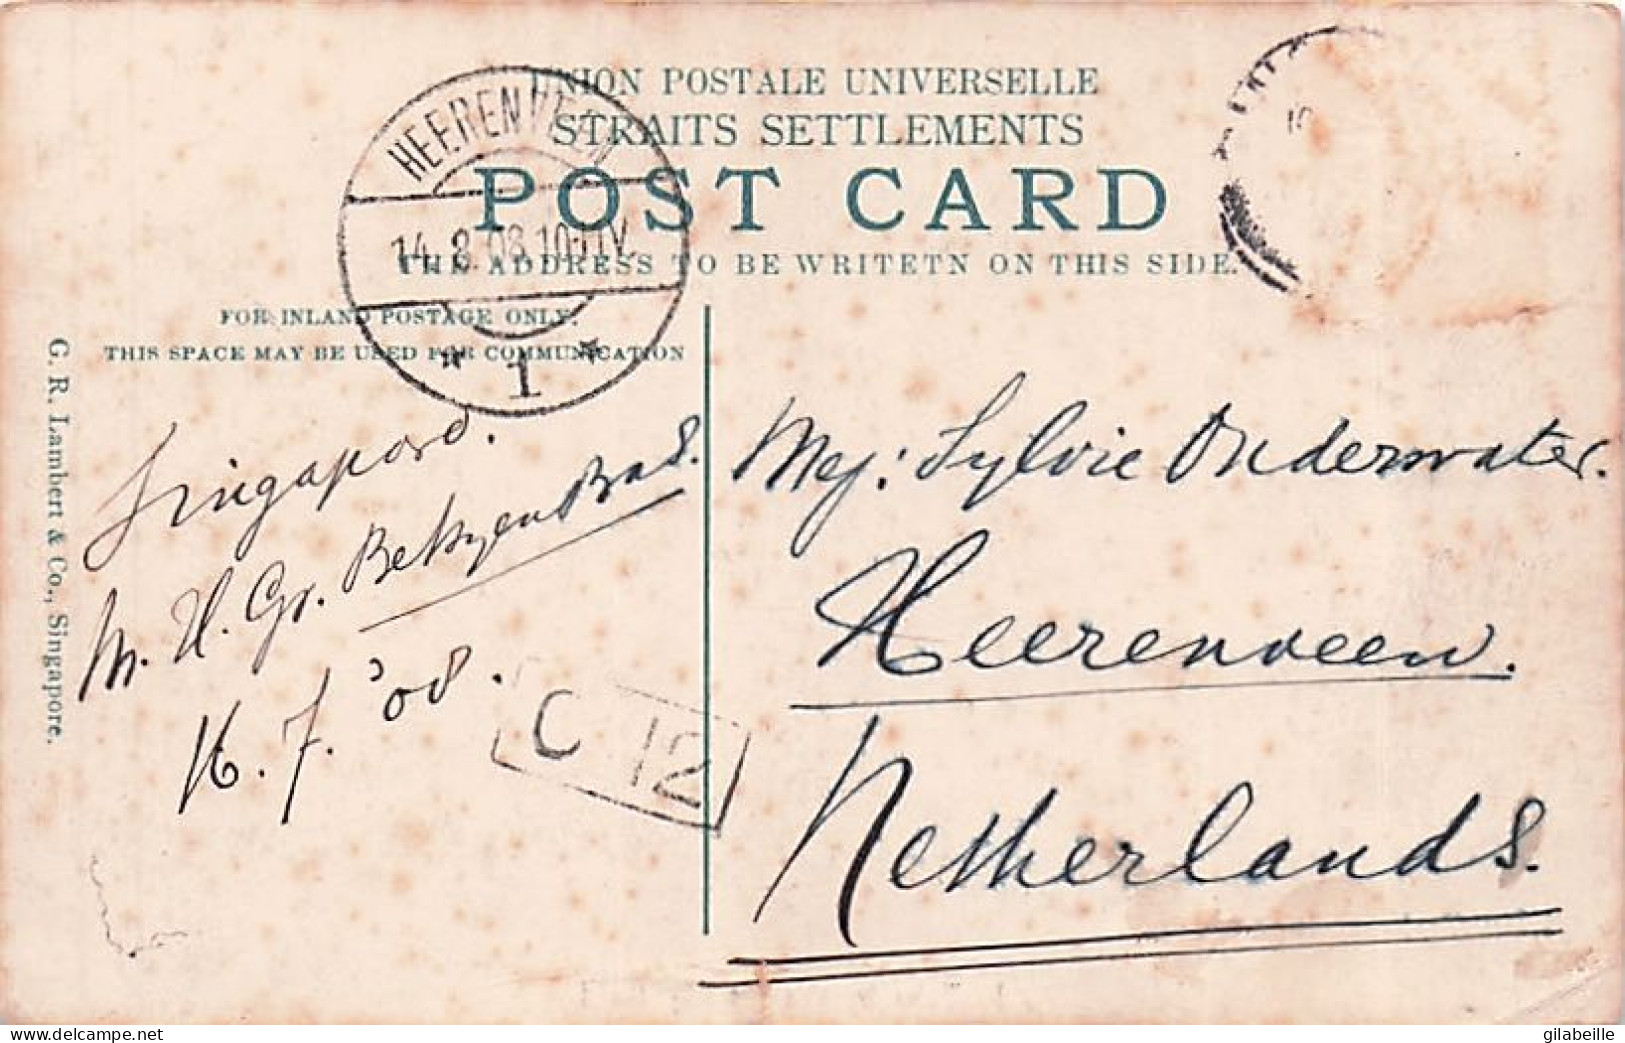 UNION POSTALE UNIVERSELLE
STRAITS SETTLEMENTS
POST CARD
THE ADDRESS TO BE WRITETN ON THIS SIDE.
HEERENVEEN
14. 8. 08. 10-11V.
1
FOR INLAND POSTAGE ONLY.
THIS SPACE MAY BE USED FOR COMMUNICATION
G. R. Lambert & Co., Singapore.
Singapore.
M. H. Gr.
16. 7. '08.
C 12
Mej: Sylvie Onderwater.
Heerenveen.
Netherlands.
delcampe.net
gilabeille